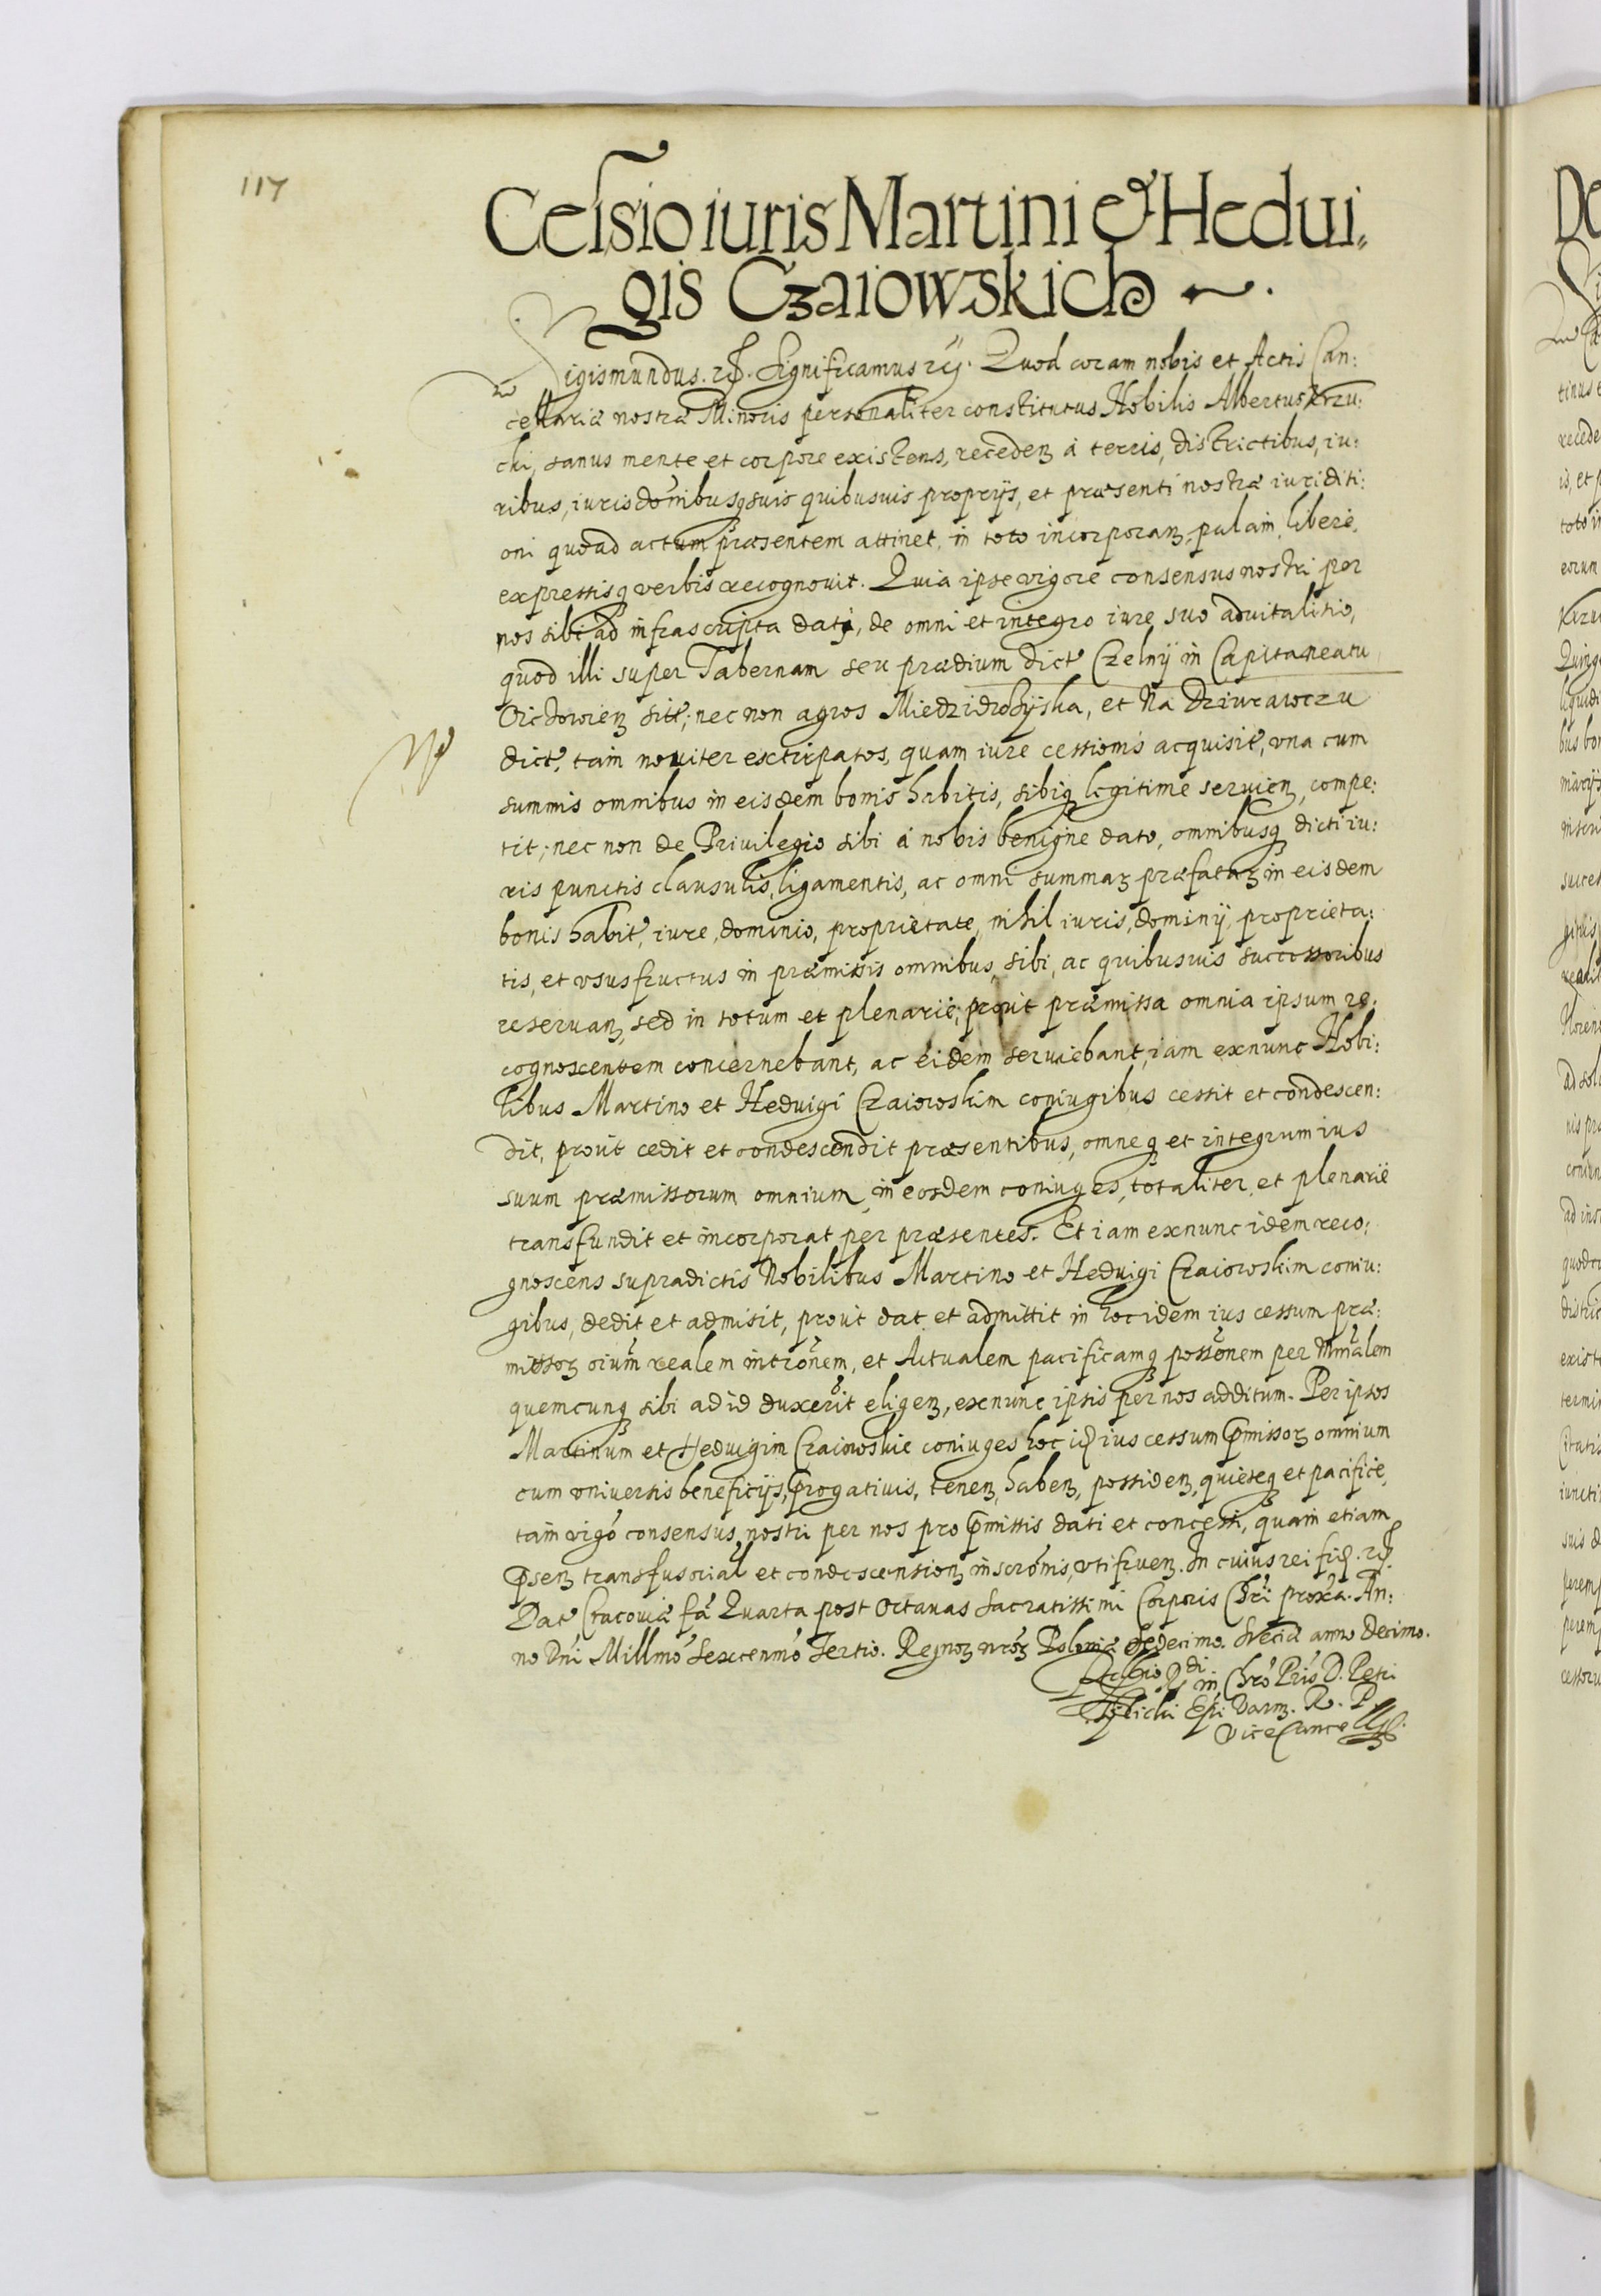 117
Cessio iuris Martini et Hedui,,
gis Czaiowskich
Sigismundus. rź. Significamus rź. Quod coram nobis et Actis Can:
cellariæ nostræ Minoris personaliter constitutus Nobilis Albertus Krzu:
cki, sanus mente et corpore existens, recedenz à terris, districtibus, iu:
ribus, iurisdōnibusq suis quibusuis proprijs, et præsenti nostræ iuriditi:
oni quoad actum præsentem attinet, in toto incorporanz, palam, liberè,
expressisq verbis recognouit. Quia ipse vigore consensus nostri per
nos sibi ad infrascripta dati, de omni et integro iure suo aduitalitio,
quod illi super Tabernam seu prædium dict Czelny in Capitaneatu
Oichowienz sit; nec non agros Miedzidrozÿska, et Na Dziurawczu
dict, tam nouiter extirpatos, quam iure cessionis acquisit, vna cum
summis omnibus in eisdem bonis habitis, sibiq legitimè seruienz, compe:
tit; nec non de Priuilegio sibi à nobis benignè dato, omnibusq dicti iu:
ris punctis clausulis, ligamentis, ac omni summaz præfataz in eisdem
bonis habit, iure, dominio, proprietate, nihil iuris, dominÿ, proprieta:
tis, et vsusfructus in præmissis omnibus, sibi, ac quibusuis successoribus
reseruanz, sed in totum et plenariè; prout præmissa omnia ipsum re:
cognoscentem concernebant, ac eidem seruiebant, iam exnunc Nobi:
libus Martino et Heduigi Czaiowskim coniugibus cessit et condescen:
dit, prout cedit et condescendit præsentibus, omneq et integrum ius
suum præmissorum omnium, in eosdem coniuges, totaliter, et plenariè
transfundit et incorporat per præsentes. Et iam exnunc idem reco:
gnoscens supradictis Nobilibus Martino et Heduigi Czaiowskim coniu:
gibus, dedit et admisit, prout dat et admittit in hoc idem ius cessum præ:
missoz oium realem intrōnem, et Actualem pacificamq possōnem per Mīnālem
quemcunq sibi ad id duxerit eligenz, exnunc ipsis per nos additum. Per ipsos
Martinum et Heduigim Czaiowskie coniuges hoc id ius cessum pmissoz omnium
cum vniuersis beneficijs, progatiuis, tenenz, habenz, possidenz, quieteq et pacificè,
tam vigō consensus, nostri per nos pro pmissis dati et concessi, quam etiam
psenz transfusorial et condescensionz inscrōnis, vti fruenz. In cuius rei fid. rź.
Dat Cracouiæ fā Quarta post Octauas Sacratissimi Corporis Chri proxā. An:
no Dni Millmō Sexcenmō Tertio. Regnoz nrōz Poloniæ decimo. Sueciæ anno decimo.
Relatio Rdi in Chrō Pris D. Petri
Tylicki Epi Varm. R. P.
ViceCancell.